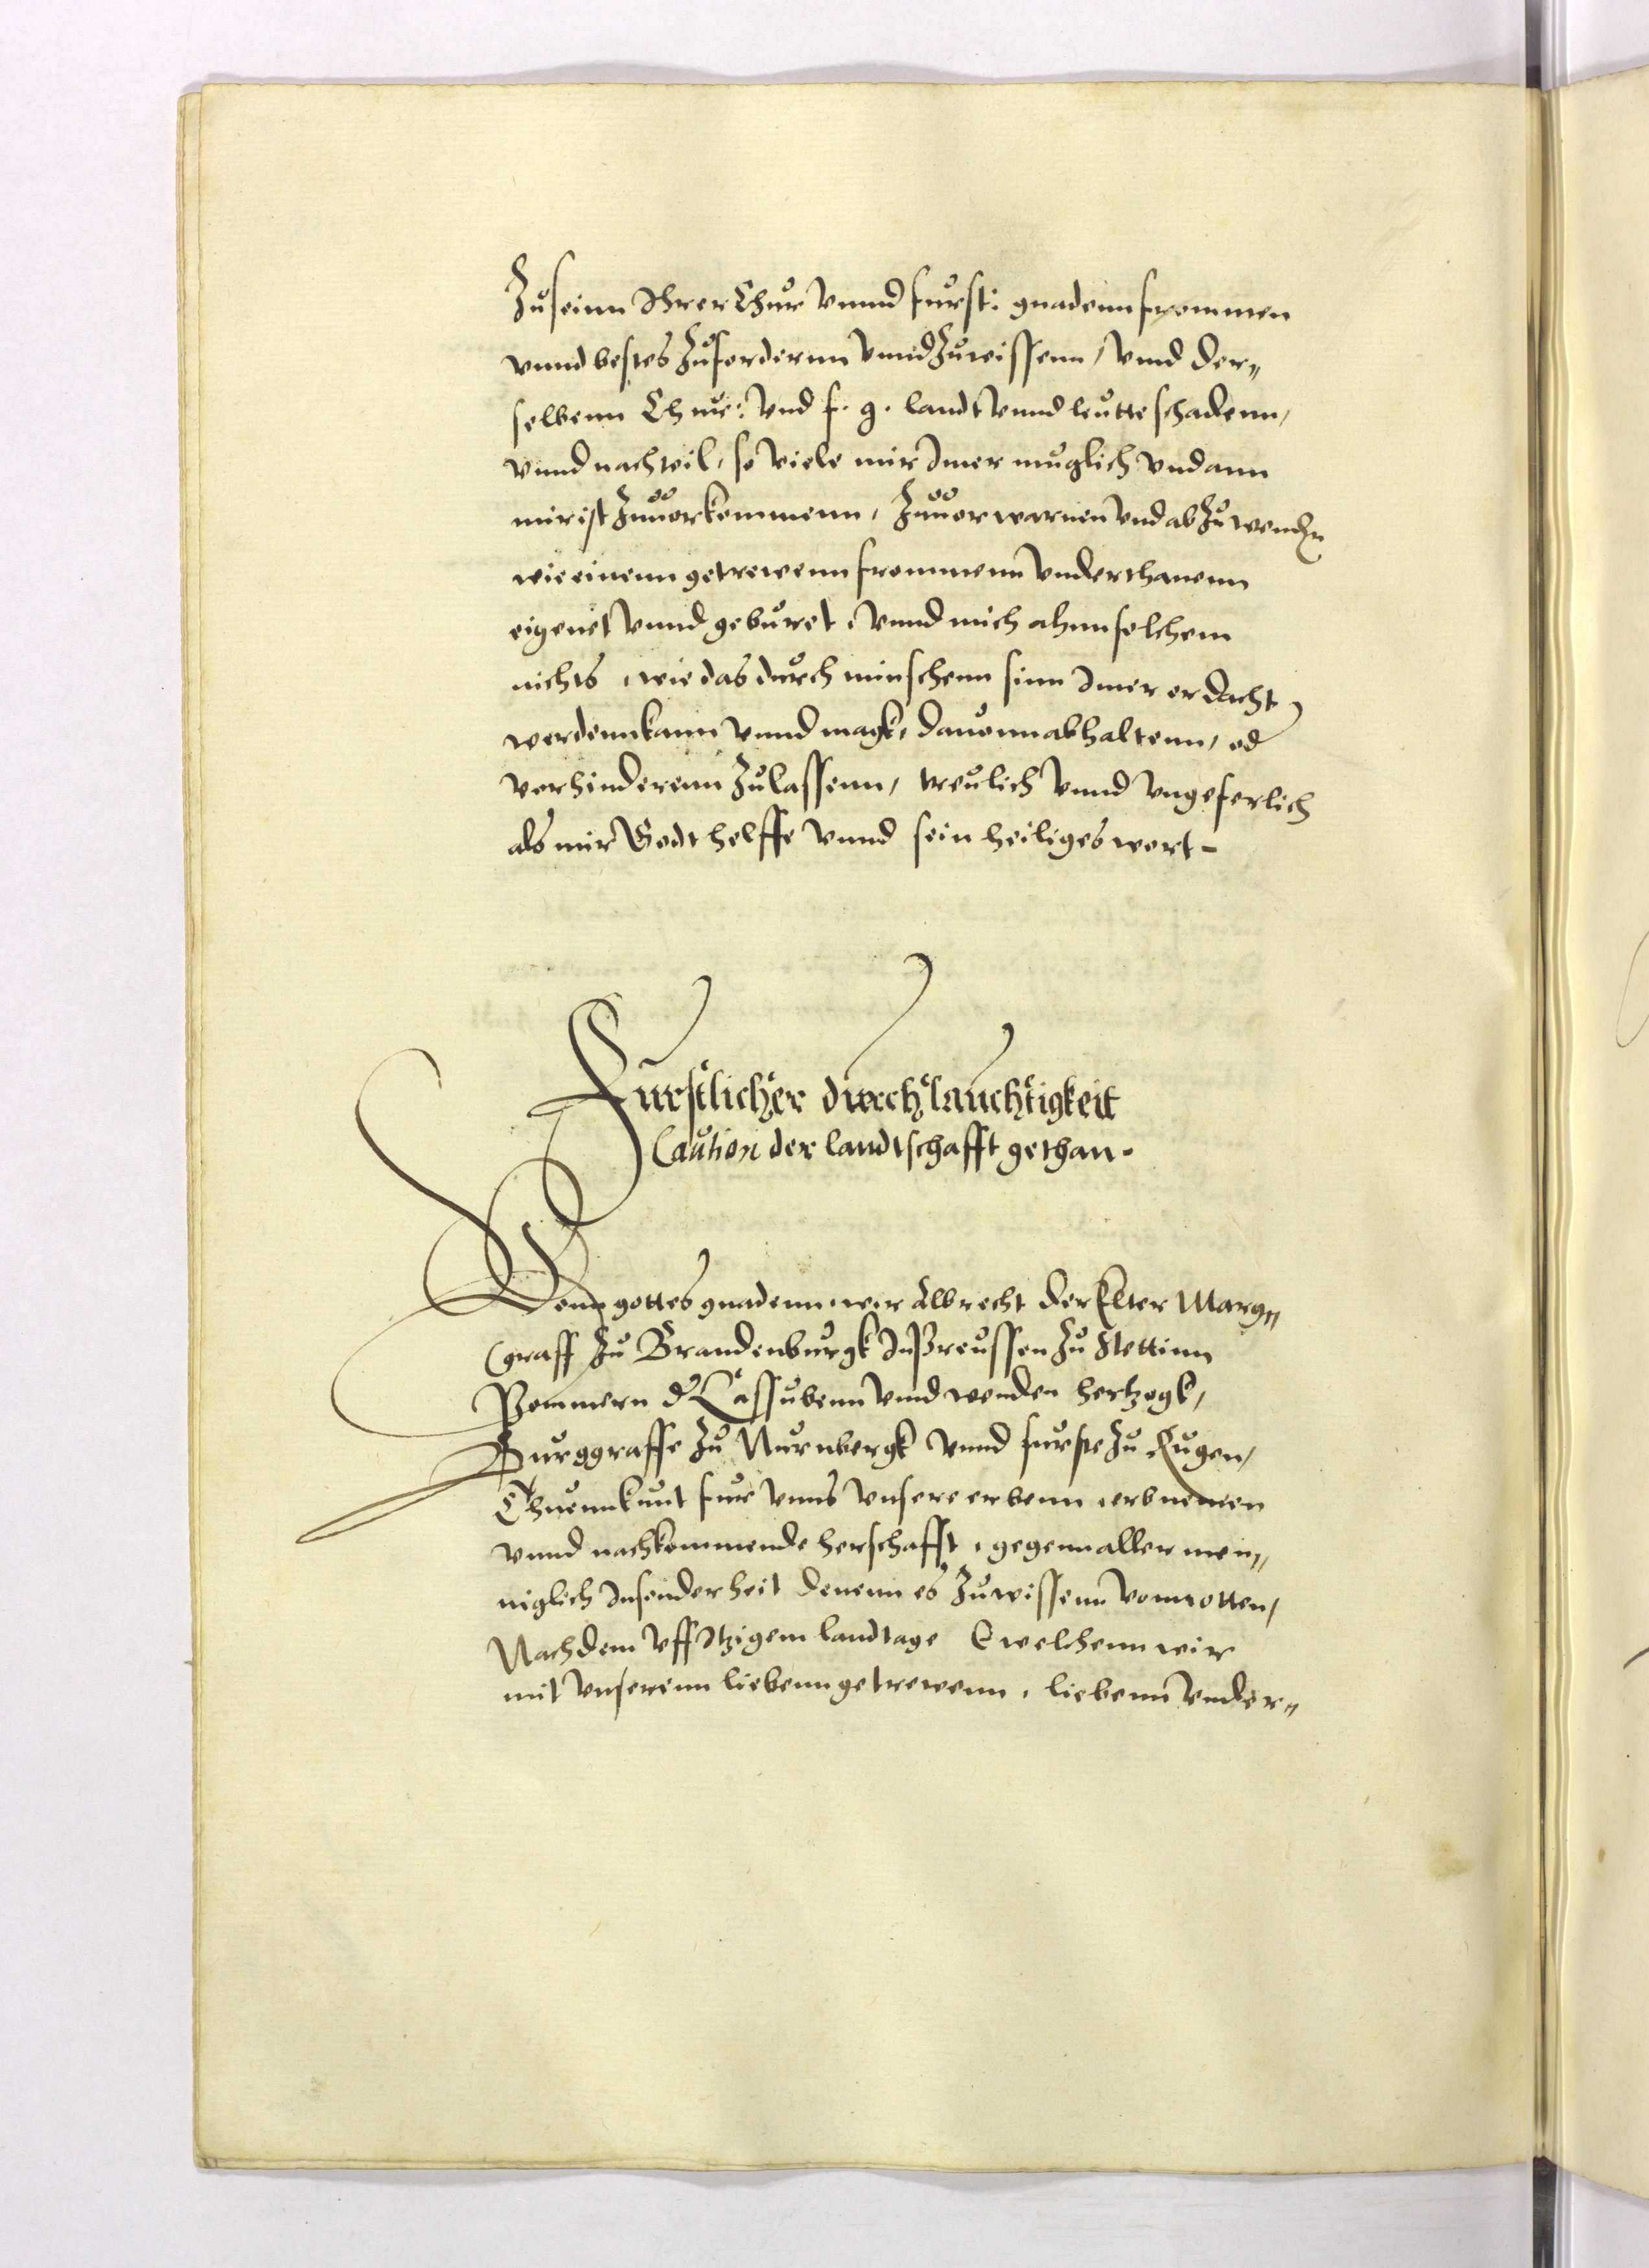 Zu seinn Ihrer Chur vnnd furst: gnadenn frommen
vnnd bestes zufordernn vnnd zuwissenn, vnnd der„
selbenn Chur: vnd f. g. landt vnnd leutte schadenn,
vnnd nachteil, so viele mir Imer muglich vnd ann
mir ist zuuorkommenn, zuuorwarnen vnd abzuwenden
wie einenn getrewenn frommenn vnderthanenn
eigenet vnnd geburet, vnnd mich ahnn solchem
nichts, wie das durch minschenn sinn Imer erdacht
werdenn kann vnnd magk, dauonn abhaltenn, od
verhinderenn zulassenn, treulich vnnd vngeferlich
als mir Godt helffe vnnd sein heiliges wort -
Furstlicher durchlauchtigkeit
Caution der landtschafft gethan.
Vonn gottes gnadenn, wir Albrecht der Elter Marg„
graff zu Brandenburgk In Preussen zu Stettinn
Pommern d Cassubenn vnnd wenden hertzogk,
Burggraffe zu Nurnbergk vnnd furste zu Rugen,
Thuenn kunt fur vnns vnsere erbenn, erbnemen
vnnd nachkommende herschafft, gegenn aller men„
niglich Insonderheit denenn es zuwissenn vonnotten,
Nachdem vff Itzigem landtage (welchenn wir
mit vnserenn liebenn getrewenn, liebenn vnder„